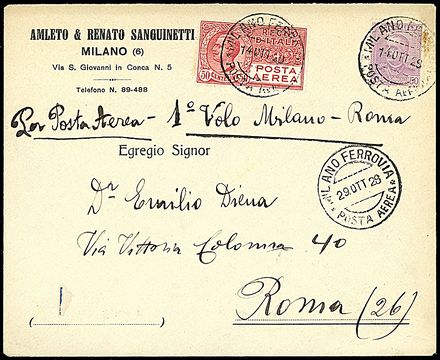 AMLETO & RENATO SANGUINETTI
MILANO (6)
Via S. Giovanni in Conca N. 5
Telefono N. 89-488
REGNO
D'ITALIA
POSTA
AEREA
50
MILANO FERROVIA
POSTA AEREA
MILANO FERROVIA
POSTA AEREA
Per Posta Aerea - 1° Volo Milano - Roma
Egregio Signor
MILANO FERROVIA
29 OTT 28
POSTA AEREA
Dr Emilio Diena
Via Vittoria Colonna 40
Roma (26)